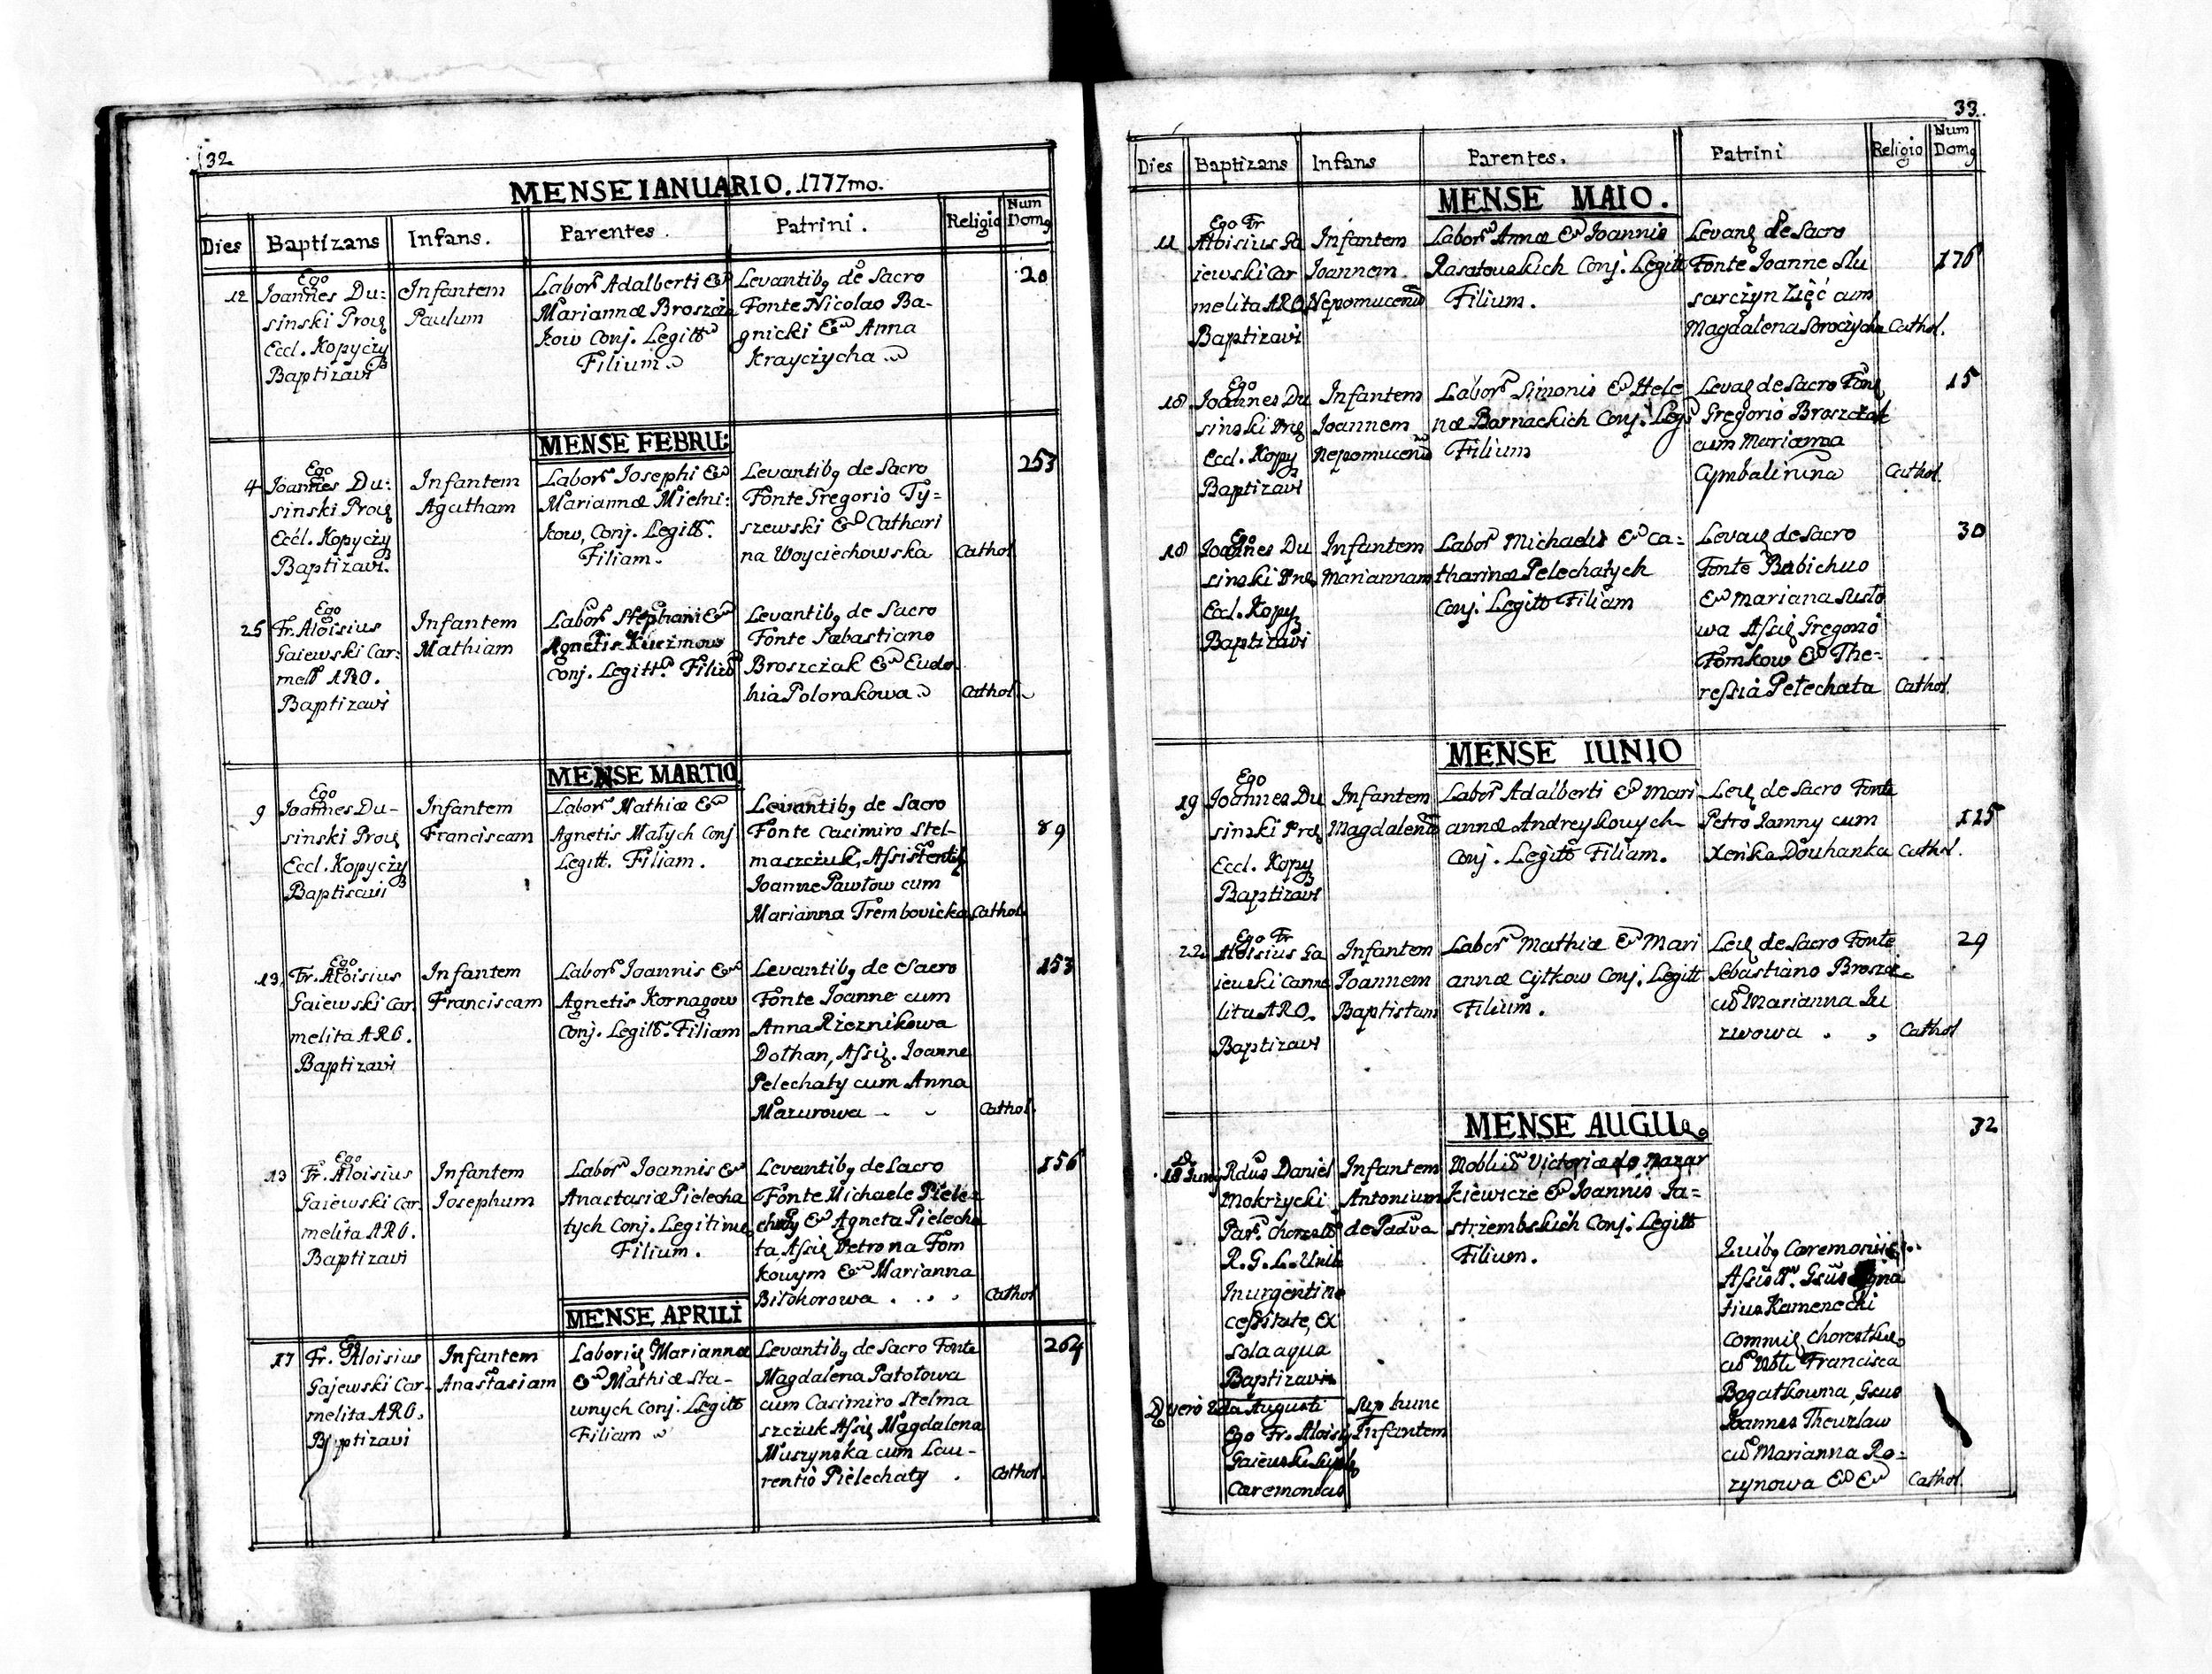 32
MENSE IANUARIO. 1777mo.
Dies Baptizans Infans. Parentes. Patrini. Religio Num Dom9
12
Ego
Ioannes Du:
sinski Proꝫ
Eccl. Kopyczyꝫ
Baptizavi
Infantem
Paulum
Labor. Adalberti &
Mariannæ Broszczo
kow Conj. Legitt
Filium.
Levantib9 de Sacro
Fonte Nicolao Ba-
gnicki & Anna
Krayczycha
20
MENSE FEBRU:
4
Ego
Ioannes Du:
sinski Proꝫ
Eccl. Kopyczyꝫ
Baptizavi.
Infantem
Agatham
Labor. Iosephi &
Mariannæ Mielni:
kow, Conj. Legitt.
Filiam.
Levantib9 de Sacro
Fonte Gregorio Ty=
szewski & Cathari
na Woyciechowska
Cathol.
253
25
Ego
Fr. Aloisius
Gaiewski Car:
melt ARO.
Baptizavi
Infantem
Mathiam
Labor Stephani &
Agnetis Kuczmow
Conj. Legitt. Filiu
Levantib9 de Sacro
Fonte Sæbastiano
Broszczak & Eudo
hia Polorakowa
Cathol.
MENSE MARTIO
9
Ego
Ioannes Du-
sinski Proꝫ
Eccl. Kopyczyꝫ
Baptisavi
Infantem
Franciscam
Labor. Mathiæ &
Agnetis Małych Conj
Legitt. Filiam.
Levantib9 de Sacro
Fonte Casimiro Stel-
maszczuk, Assistentiꝫ
Ioanne Pawłow cum
Marianna Trembovicka
Cathol.
89
13
Ego
Fr. Aloisius
Gaiewski Car
melita ARO.
Baptizavi
Infantem
Franciscam
Labor. Ioannis &
Agnetis Kornagow
Conj. Legitt. Filiam
Levantib9 de Sacro
Fonte Ioanne cum
Anna Rzeznikowa
Dothan, Assiꝫ. Ioanne
Pelechaty cum Anna
Mazurowa
Cathol.
153
13
Ego
Fr. Aloisius
Gaiewski Car.
melita ARO.
Baptizavi
Infantem
Iosephum
Labor. Ioannis &
Anastasiæ Pielecha
tych Conj. Legitime
Filium.
Levantib9 de Sacro
Fonte Michaele Piele-
chaty & Agneta Pielecha
ta, Assiꝫ Petrona Tom
kowym & Marianna
Bitohorowa
Cathol
156
MENSE APRILI
17
Ego
Fr. Aloisius
Gajewski Car-
melita ARO.
Baptizavi
Infantem
Anastasiam
Laboriꝫ Mariannæ
& Mathiæ Sta-
wnych Conj. Legitt
Filiam
Levantib9 de Sacro Fonte
Magdalena Patołowa
cum Casimiro Stelma
szczuk Assiꝫ Magdalena
Muszynska cum Lau-
rentio Pielechaty.
Cathol.
264
33.
Dies Baptizans Infans Parentes. Patrini Religio Num Dom9
MENSE MAIO.
11
Ego Fr
Aloisius Ga
iewski Car
melita ARO
Baptizavi
Infantem
Ioannem
Nepomucenu
Labor. Annæ & Ioannis
Rasatowskich Conj. Legitt
Filium.
Levanꝫ de Sacro
Fonte Ioanne Slu
sarczyn Zięć cum
Magdalena Soroczycha
Cathol.
176
18
Ego
Ioannes Du
sinski Prꝫ
Eccl. Kopyꝫ
Baptizavi
Infantem
Ioannem
Nepomucenu
Labor. Simonis & Hele
næ Barnackich Conj. Legi
Filium
Levaꝫ de Sacro Fonꝫ
Gregorio Broszczak
cum Marianna
Cymbaliruna
Cathol.
15
18
Ego
Ioannes Du
sinski Prꝫ
Eccl. Kopyꝫ
Baptizavi
Infantem
Mariannam
Labor. Michaelis & Ca=
tharinæ Pelechatych
Conj. Legitt Filiam
Levaꝫ de Sacro
Fonte Babichuo
& Mariana Susto
wa Assiꝫ Gregorio
Tomkow & The=
ressia Pelechata
Cathol.
30
MENSE IUNIO
19
Ego
Ioannes Du
sinski Prꝫ
Eccl. Kopyꝫ
Baptizavi
Infantem
Magdalenam
Labor Adalberti & Mari
annæ Andreykowych
Conj. Legitt Filiam.
Leꝫ de Sacro Fonte
Petro Iamny cum
Xenka Douhanka
Cathol.
115
22
Ego Fr
Aloisius Ga
iewski Carme
lita ARO.
Baptizavi
Infantem
Ioannem
Baptistam
Labor. Mathiæ & Mari
annæ Cytkow Conj. Legitt
Filium.
Leꝫ de Sacro Fonte
Sebastiano Broszcz
cu Marianna Iu
zwowa
Cathol
29
MENSE AUGUꝫ
18 Iuny
Rdus Daniel
Mokrzycki
Par. Chorost
R. G. L. Unit
In urgenti ne
cessitate, ex
sola aqua
Baptizavit
Infantem
Antonium
de Padva
Nobliu Victoriæ de Nazar
kiewicze & Ioannis Ia=
strzembskich Conj. Legitt
Filium.
Quib9 Cæremoniis
Assistt. Gsus Igna
tius Kamenecki
Commiꝫ Chorostkuo
cu Nbli Francisca
Bogatkowna, Gsus
Ioannes Theuzlaw
cu Marianna Ro=
zynowa & &
Cathol.
32
vero 2da Augusti
Ego Fr. Aloisiꝫ
Gaiewski suplꝫ
Cæremonias
sup hunc
Infantem